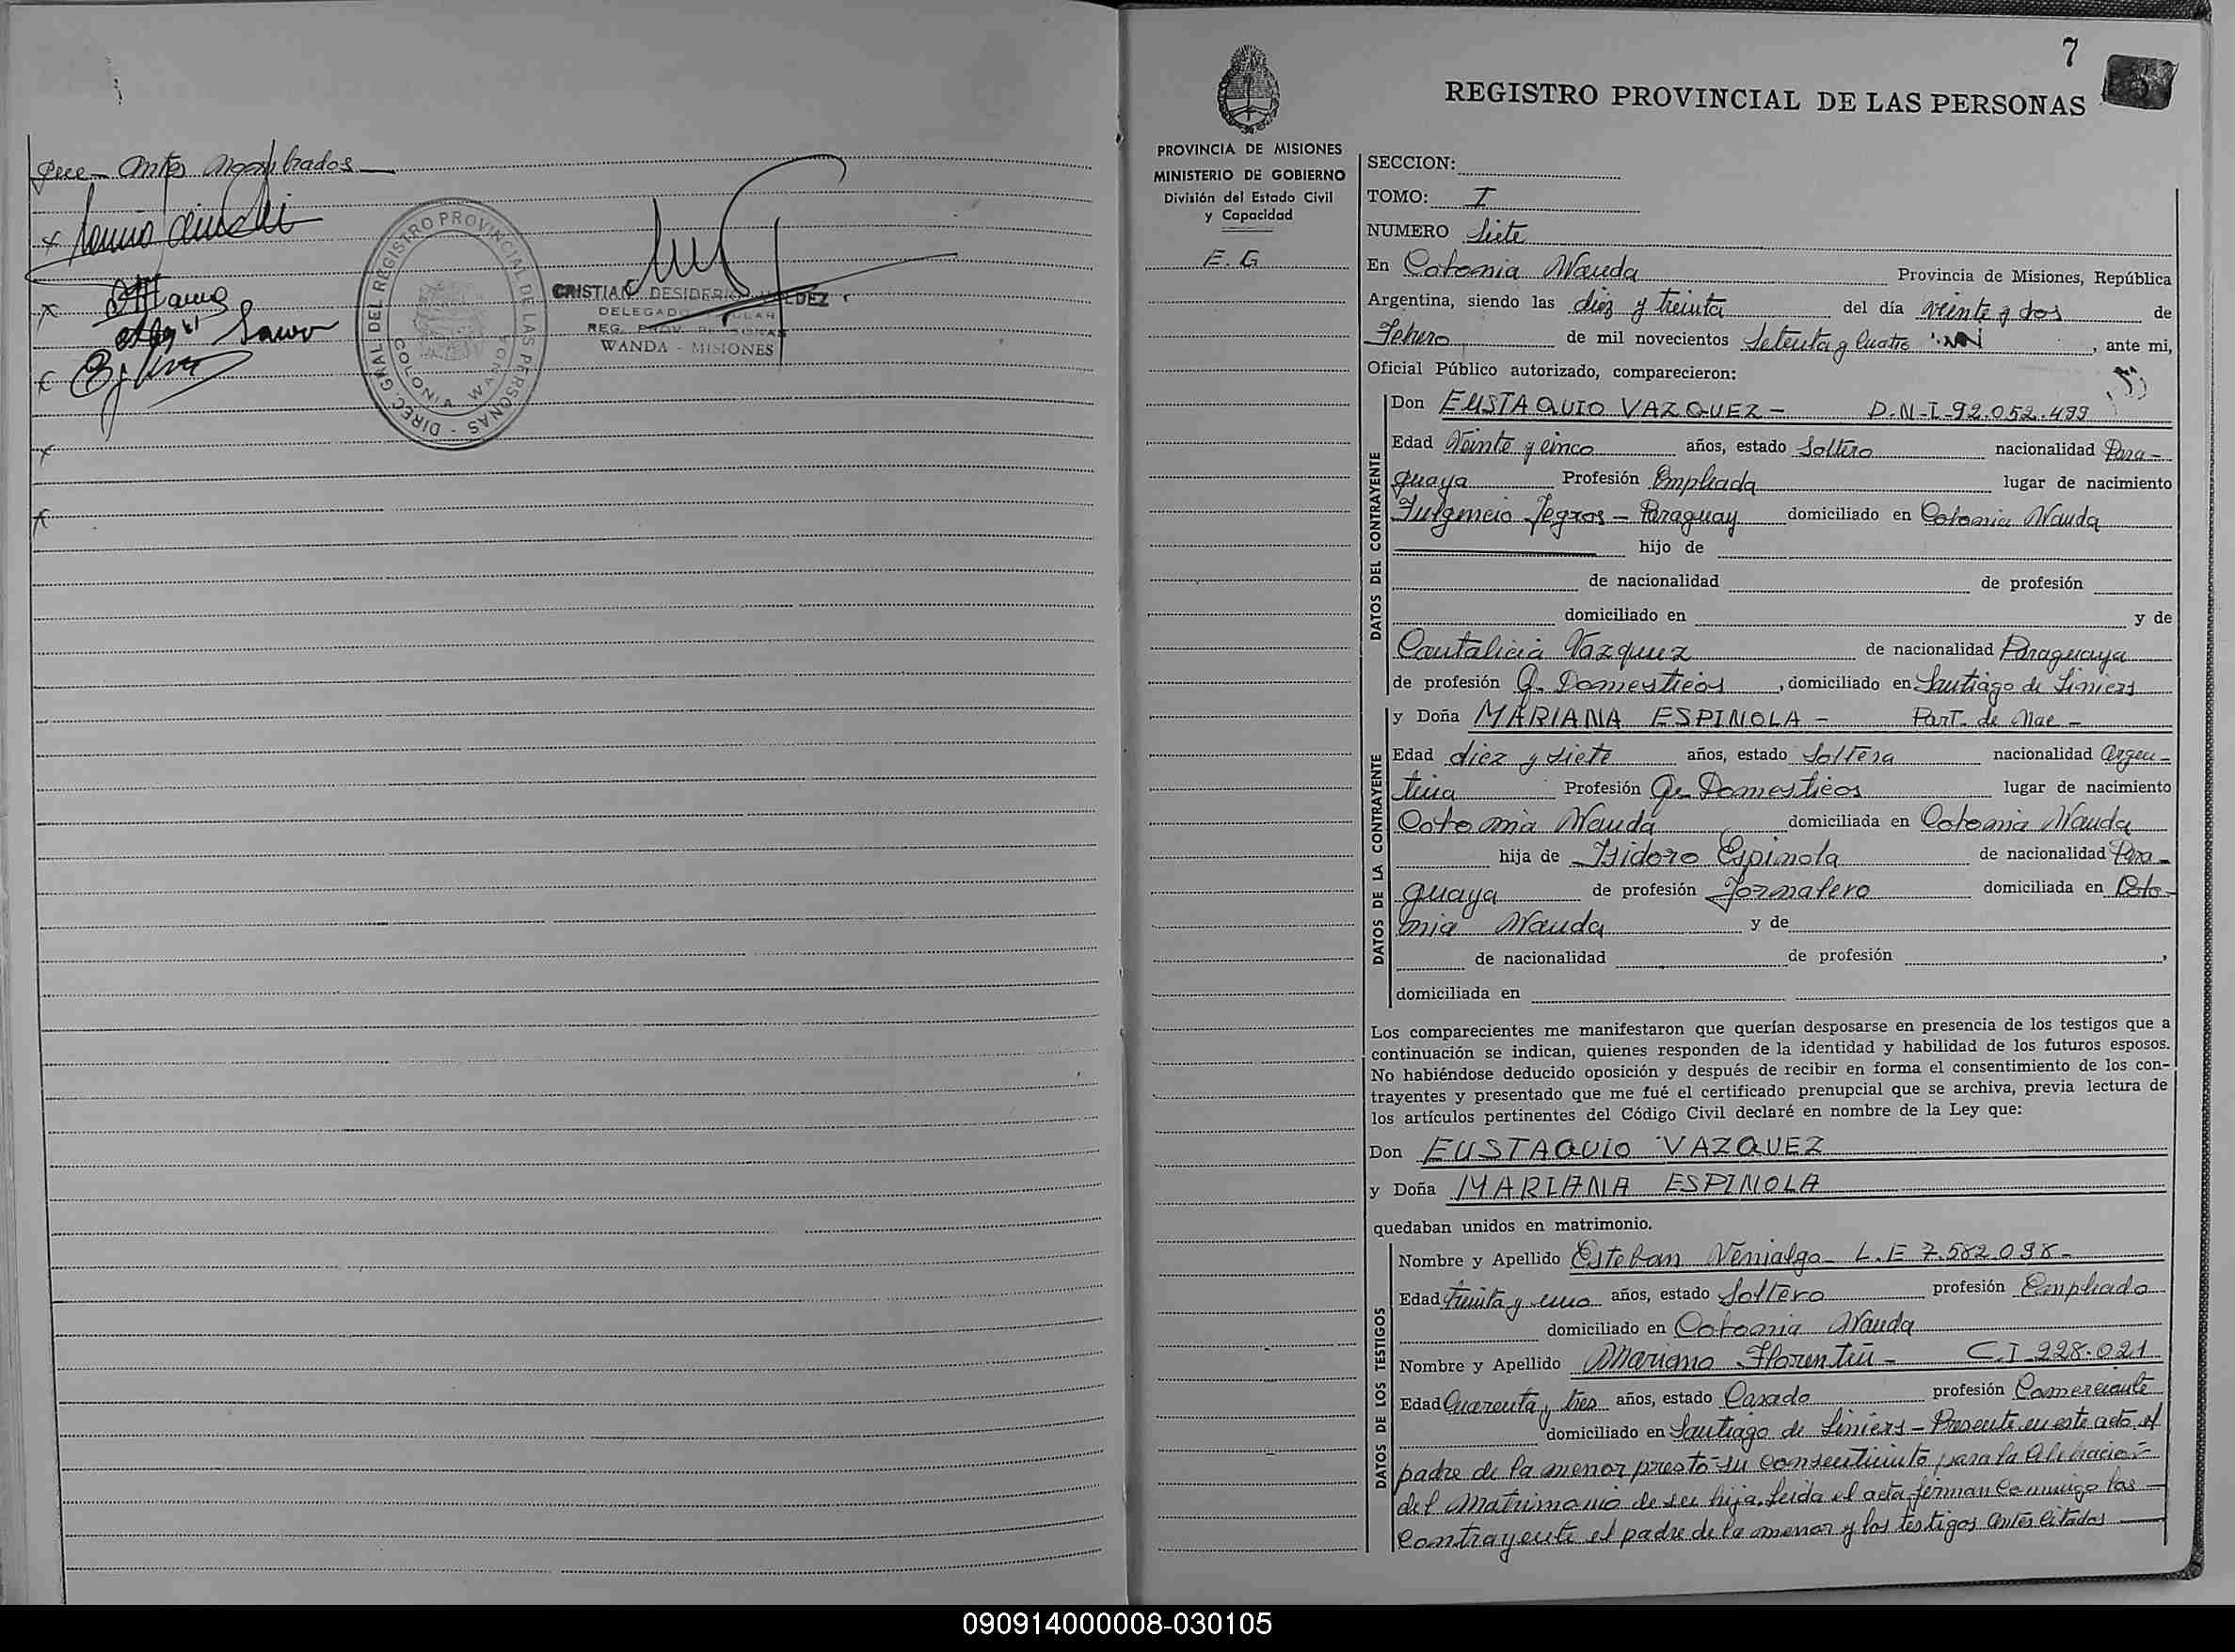 que antes nombrados
DIREC. GRAL DEL REGISTRO PROVINCIAL DE LAS PERSONAS -
COLONIA WANDA
CRISTIAN DESIDERIO
DELEGADO TITULAR
REG. PROV. PERSONAS
WANDA - MISIONES
7
REGISTRO PROVINCIAL DE LAS PERSONAS
PROVINCIA DE MISIONES
MINISTERIO DE GOBIERNO
División del Estado Civil
y Capacidad
E.G
SECCION:
TOMO: I
NUMERO Siete
En Colonia Wanda Provincia de Misiones, República
Argentina, siendo las diez y treinta del día veinte y dos de
Febrero de mil novecientos Setenta y Cuatro, ante mi,
Oficial Público autorizado, comparecieron:
DATOS DEL CONTRAYENTE
Don EUSTAQUIO VAZQUEZ - D.N.I. 92.052.499
Edad Veinte y cinco años, estado Soltero nacionalidad Para-
guaya Profesión Empleada lugar de nacimiento
Fulgencio Yegros - Paraguay domiciliado en Colonia Wanda
hijo de
de nacionalidad de profesión
domiciliado en y de
Cantalicia Vazquez de nacionalidad Paraguaya
de profesión Q. Domesticos, domiciliado en Santiago de Liniers
DATOS DE LA CONTRAYENTE
y Doña MARIANA ESPINOLA - Part. de Nac -
Edad diez y siete años, estado Soltera nacionalidad Argen-
tina Profesión Q. Domesticos lugar de nacimiento
Colonia Wanda domiciliada en Colonia Wanda
hija de Isidoro Espinola de nacionalidad Para-
guaya de profesión Jornalero domiciliada en Colo-
nia Wanda y de
de nacionalidad de profesión ,
domiciliada en
Los comparecientes me manifestaron que querían desposarse en presencia de los testigos que a
continuación se indican, quienes responden de la identidad y habilidad de los futuros esposos.
No habiéndose deducido oposición y después de recibir en forma el consentimiento de los con-
trayentes y presentado que me fué el certificado prenupcial que se archiva, previa lectura de
los artículos pertinentes del Código Civil declaré en nombre de la Ley que:
Don EUSTAQUIO VAZQUEZ
y Doña MARIANA ESPINOLA
quedaban unidos en matrimonio.
DATOS DE LOS TESTIGOS
Nombre y Apellido Esteban Venialgo - L.E 7.582.098-
Edad treinta y uno años, estado Soltero profesión Empleado
domiciliado en Colonia Wanda
Nombre y Apellido Mariano Florentin - C.I 228.021
Edad Cuarenta y tres años, estado Casado profesión Comerciante
domiciliado en Santiago de Liniers - Presente en este acto el
padre de la menor prestó su consentimiento para la
del Matrimonio de su hija. Leida el acta firman conmigo los
Contrayente el padre de la menor y los testigos antes citados
090914000008-030105